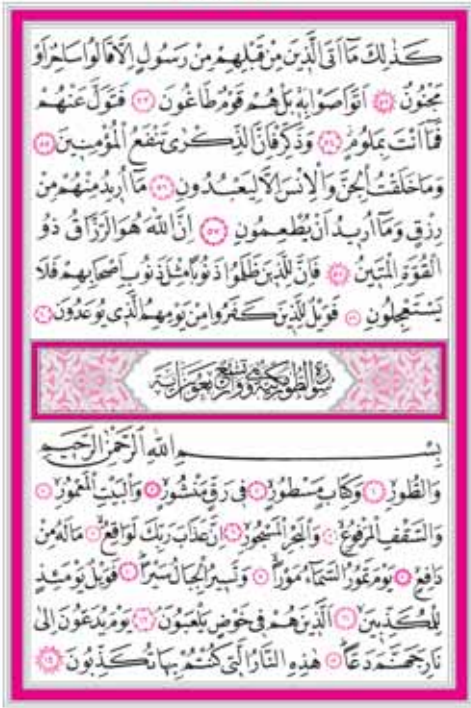 كَذٰلِكَ مَٓا اَتَى الَّذ۪ينَ مِنْ قَبْلِهِمْ مِنْ رَسُولٍ اِلَّا قَالُوا سَاحِرٌ اَوْ
مَجْنُونٌ ﴿٥٢﴾ اَتَوَاصَوْا بِه۪ۚ بَلْ هُمْ قَوْمٌ طَاغُونَ ﴿٥٣﴾ فَتَوَلَّ عَنْهُمْ
فَمَٓا اَنْتَ بِمَلُومٍ ﴿٥٤﴾ وَذَكِّرْ فَاِنَّ الذِّكْرٰى تَنْفَعُ الْمُؤْمِن۪ينَ ﴿٥٥﴾
وَمَا خَلَقْتُ الْجِنَّ وَالْاِنْسَ اِلَّا لِيَعْبُدُونِ ﴿٥٦﴾ مَٓا اُر۪يدُ مِنْهُمْ مِنْ
رِزْقٍ وَمَٓا اُر۪يدُ اَنْ يُطْعِمُونِ ﴿٥٧﴾ اِنَّ اللّٰهَ هُوَ الرَّزَّاقُ ذُو
الْقُوَّةِ الْمَت۪ينُ ﴿٥٨﴾ فَاِنَّ لِلَّذ۪ينَ ظَلَمُوا ذَنُوبًا مِثْلَ ذَنُوبِ اَصْحَابِهِمْ فَلَا
يَسْتَعْجِلُونِ ﴿٥٩﴾ فَوَيْلٌ لِلَّذ۪ينَ كَفَرُوا مِنْ يَوْمِهِمُ الَّذ۪ي يُوعَدُونَ ﴿٦٠﴾
سُورَةُ الطُّورِ مَكِّيَّةٌ وَهِيَ تِسْعٌ وَاَرْبَعُونَ اٰيَةً
بِسْمِ اللّٰهِ الرَّحْمٰنِ الرَّح۪يمِ
وَالطُّورِ ﴿١﴾ وَكِتَابٍ مَسْطُورٍ ﴿٢﴾ ف۪ي رَقٍّ مَنْشُورٍ ﴿٣﴾ وَالْبَيْتِ الْمَعْمُورِ ﴿٤﴾
وَالسَّقْفِ الْمَرْفُوعِ ﴿٥﴾ وَالْبَحْرِ الْمَسْجُورِ ﴿٦﴾ اِنَّ عَذَابَ رَبِّكَ لَوَاقِعٌ ﴿٧﴾ مَا لَهُ مِنْ
دَافِعٍ ﴿٨﴾ يَوْمَ تَمُورُ السَّمَٓاءُ مَوْرًا ﴿٩﴾ وَتَس۪يرُ الْجِبَالُ سَيْرًا ﴿١٠﴾ فَوَيْلٌ يَوْمَئِذٍ
لِلْمُكَذِّب۪ينَ ﴿١١﴾ اَلَّذ۪ينَ هُمْ ف۪ي خَوْضٍ يَلْعَبُونَ ﴿١٢﴾ يَوْمَ يُدَعُّونَ اِلٰى
نَارِ جَهَنَّمَ دَعًّا ﴿١٣﴾ هٰذِهِ النَّارُ الَّت۪ي كُنْتُمْ بِهَا تُكَذِّبُونَ ﴿١٤﴾